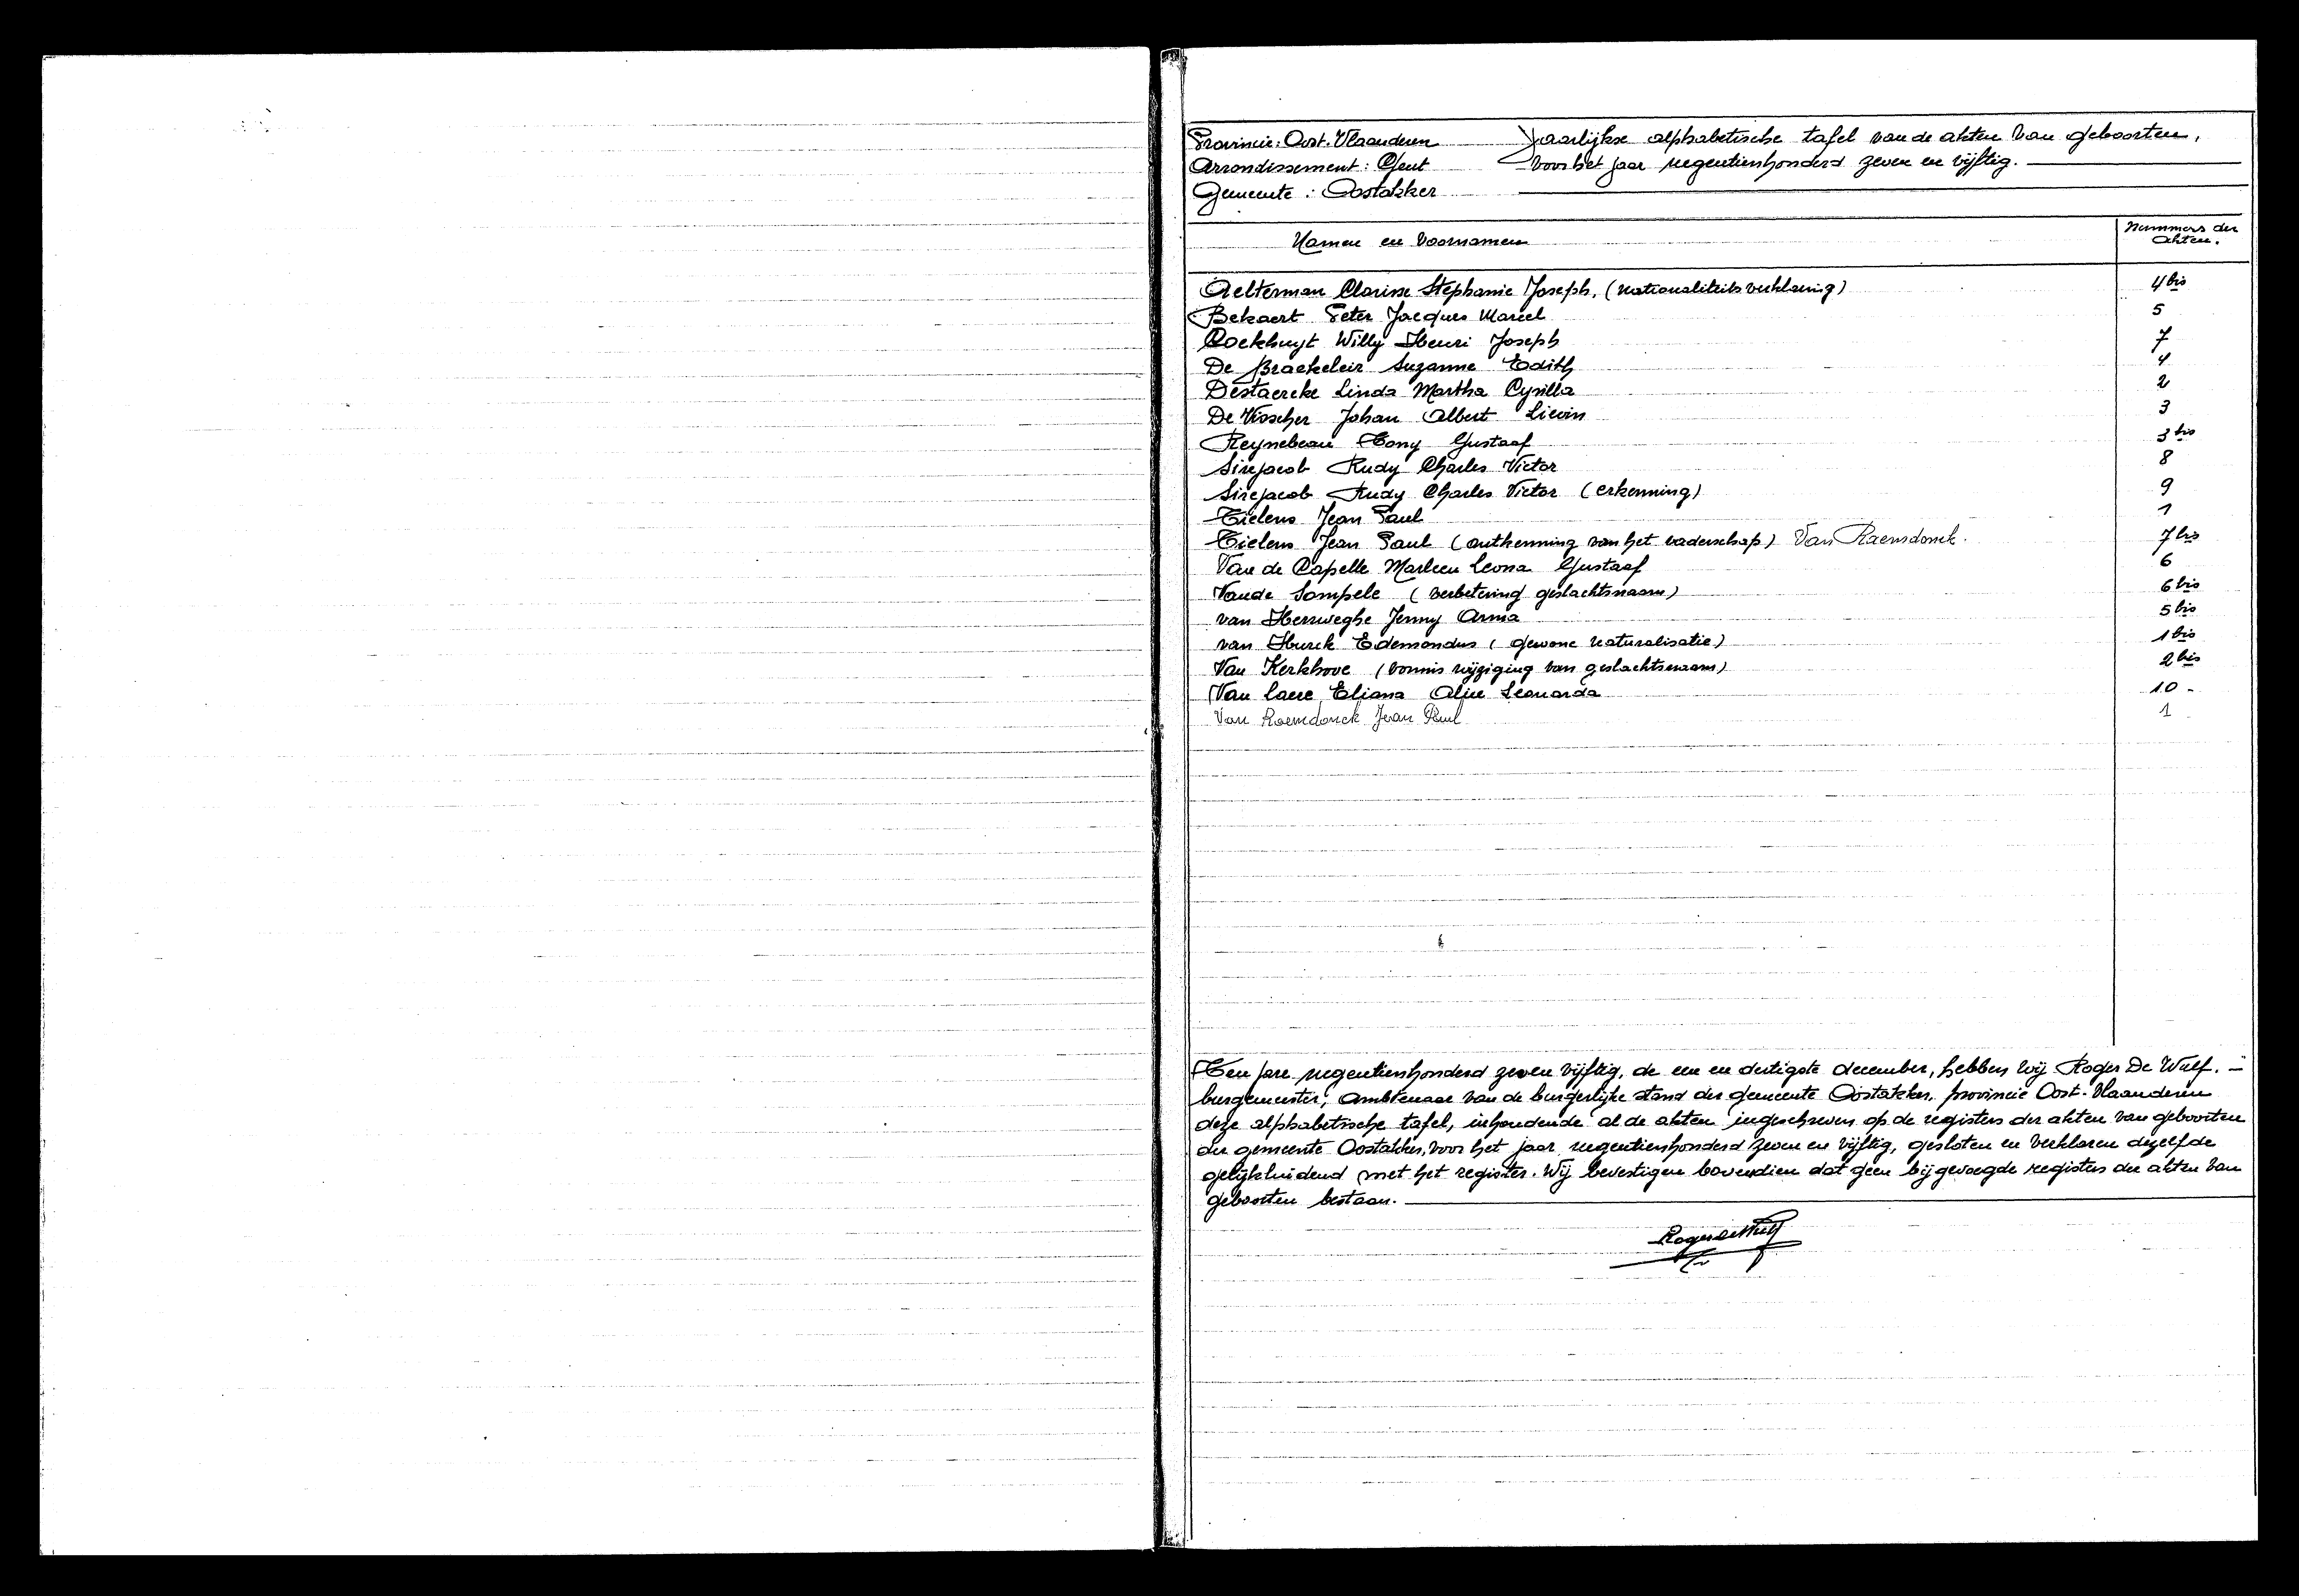 Provincie: Oost-Vlaanderen Jaarlijkse alphabetische tafel van de akten van geboorten,
Arrondissement: Gent voor het jaar negentienhonderd zeven en vijftig.
Gemeente: Oostakker
Namen en Voornamen Nummers der akten.
Aelterman Clarisse Stephanie Joseph. (nationaliteitsverklaring) 4 bis
Bekaert Peter Jacques Marcel 5
Coekhuyt Willy Henri Joseph 7
De Braekeleir Suzanne Edith 4
Destaercke Linda Martha Cyrilla 2
De Visscher Johan Albert Lievin 3
Reynebeau Tony Gustaaf 3 bis
Sirejacob Rudy Charles Victor 8
Sirejacob Rudy Charles Victor (erkenning) 9
Tielens Jean Paul 1
Tielens Jean Paul (ontkenning van het vaderschap) Van Raemdonck. 7 bis
Van de Capelle Marleen Leona Gustaaf 6
Vande Sompele (verbetering geslachtsnaam) 6 bis
van Herrweghe Jenny Anna 5 bis
van Hurck Edemondus (gewone naturalisatie) 1 bis
Van Kerkhove (vonnis wijziging van geslachtsnaam) 2 bis
Van Laere Eliana Alice Leonarda 10 -
Van Raemdonck Jean Paul 1
Ten jare negentienhonderd zeven vijftig, de een en dertigste december, hebben wij Roger De Wulf. -
burgemeester, ambtenaar van de burgerlijke stand der gemeente Oostakker, provincie Oost-Vlaanderen
deze alphabetische tafel, inhoudende al de akten ingeschreven op de registers der akten van geboorten
der gemeente Oostakker, voor het jaar negentienhonderd zeven en vijftig, gesloten en verklaren dezelfde
gelijkluidend met het register. Wij bevestigen bovendien dat geen bijgevoegde registers der akten van
geboorten bestaan.
Roger De Wulf